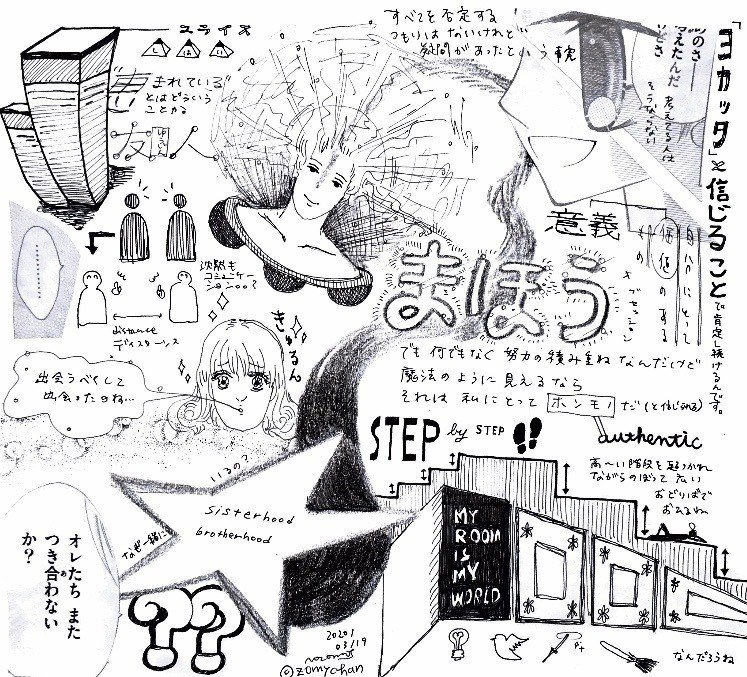 スライス
し
は
い
まれている
とはどういう
ことかる
友 人
すべてを否定する
つもりはないけれど
疑問があったという事
のさ――
考えたんだ
考えてる人は
そうならない
「ヨカッタ」と信じること
で肯定し続けるんです。
意義
自分にとって
価値のする
もの
オブセッション
まほう
でも何でもなく 努力の積み重ねなんだけど
魔法のように見えるなら
それは 私にとって ホンモノ だ(と信じれる)
authentic
………
沈黙も
コミュニケー
ション○○?
distance
ディスタンス
きゅるん
出会うべくして
出会ったのね…
STEP by STEP !!
高〜い階段を
ながらのぼって 広い
おどりばで
おえるね
MY
ROOM
IS
MY
WORLD
いつの?
なぜ一緒に
sisterhood
brotherhood
オレたち また
つき合わない
か?
??
2020/
03/19
nozomi
@zomychan
Pt
なんだろうね